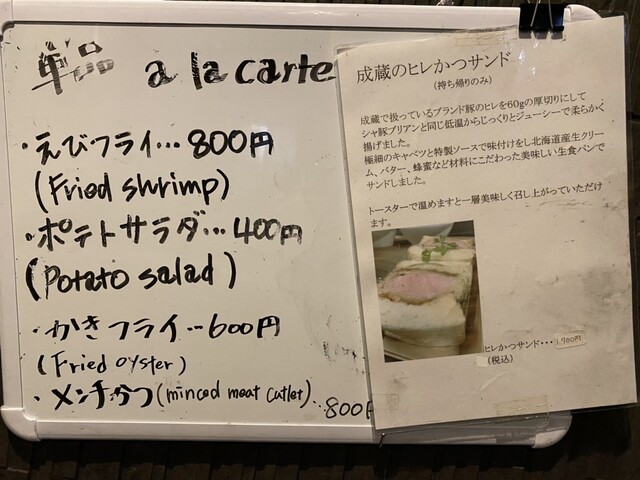 単品 a la carte
・えびフライ…800円
(Fried shrimp)
・ポテトサラダ…400円
(Potato salad)
・かきフライ…600円
(Fried oyster)
・メンチかつ(minced meat cutlet)…800円
成蔵のヒレかつサンド
(持ち帰りのみ)
成蔵で扱っているブランド豚のヒレを60gの厚切りにして
シャ豚ブリアンと同じ低温からじっくりとジューシーで柔らかく
揚げました。
極細のキャベツと特製ソースで味付けをし北海道産生クリー
ム、バター、蜂蜜など材料にこだわった美味しい生食パンで
サンドしました。
トースターで温めますと一層美味しく召し上がっていただけ
ます。
ヒレかつサンド・・・1,900円
(税込)